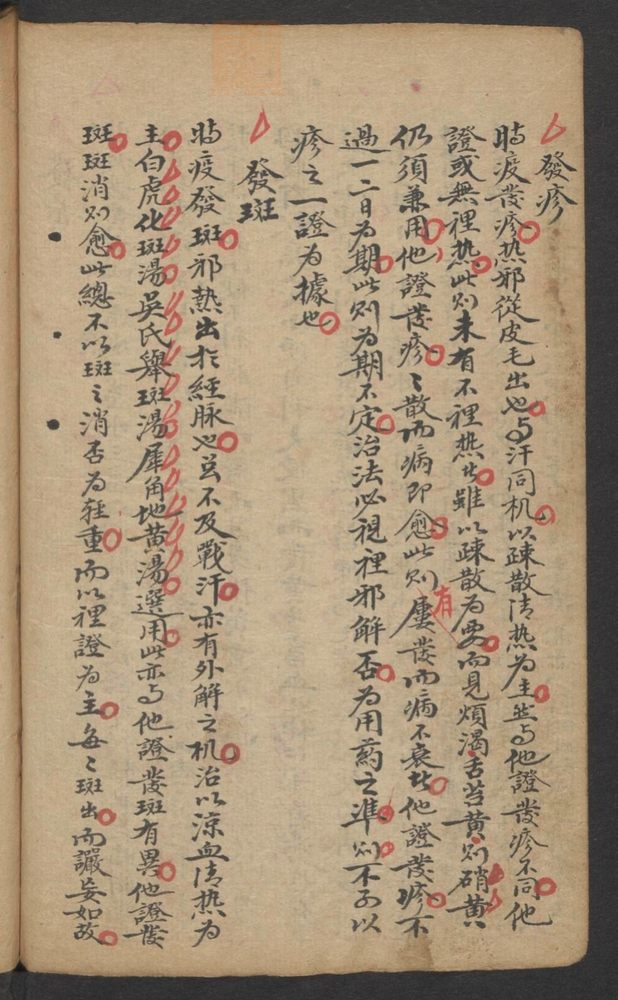 發疹
時疫發疹热邪從皮毛出也与汗同机以疎散清热为主然与他證發疹不同他
證或無裡热此則未有不裡热者雖以疎散为要而見煩渴舌苔黄則硝黄
仍須兼用他證發疹〻散而病即愈此則有屢發而病不衰者他證發疹不
過一二日为期此則为期不定治法必視裡邪解否为用药之準則不可以
疹之一證为據也
發斑
時疫發斑邪熱出於經脉也虽不及戰汗亦有外解之机治以凉血清热为
主白虎化斑湯吳氏舉斑湯犀角地黄湯選用此亦与他證發斑有異他證發
斑斑消則愈此總不以斑之消否为軽重而以裡證为主每〻斑出而讝妄如故